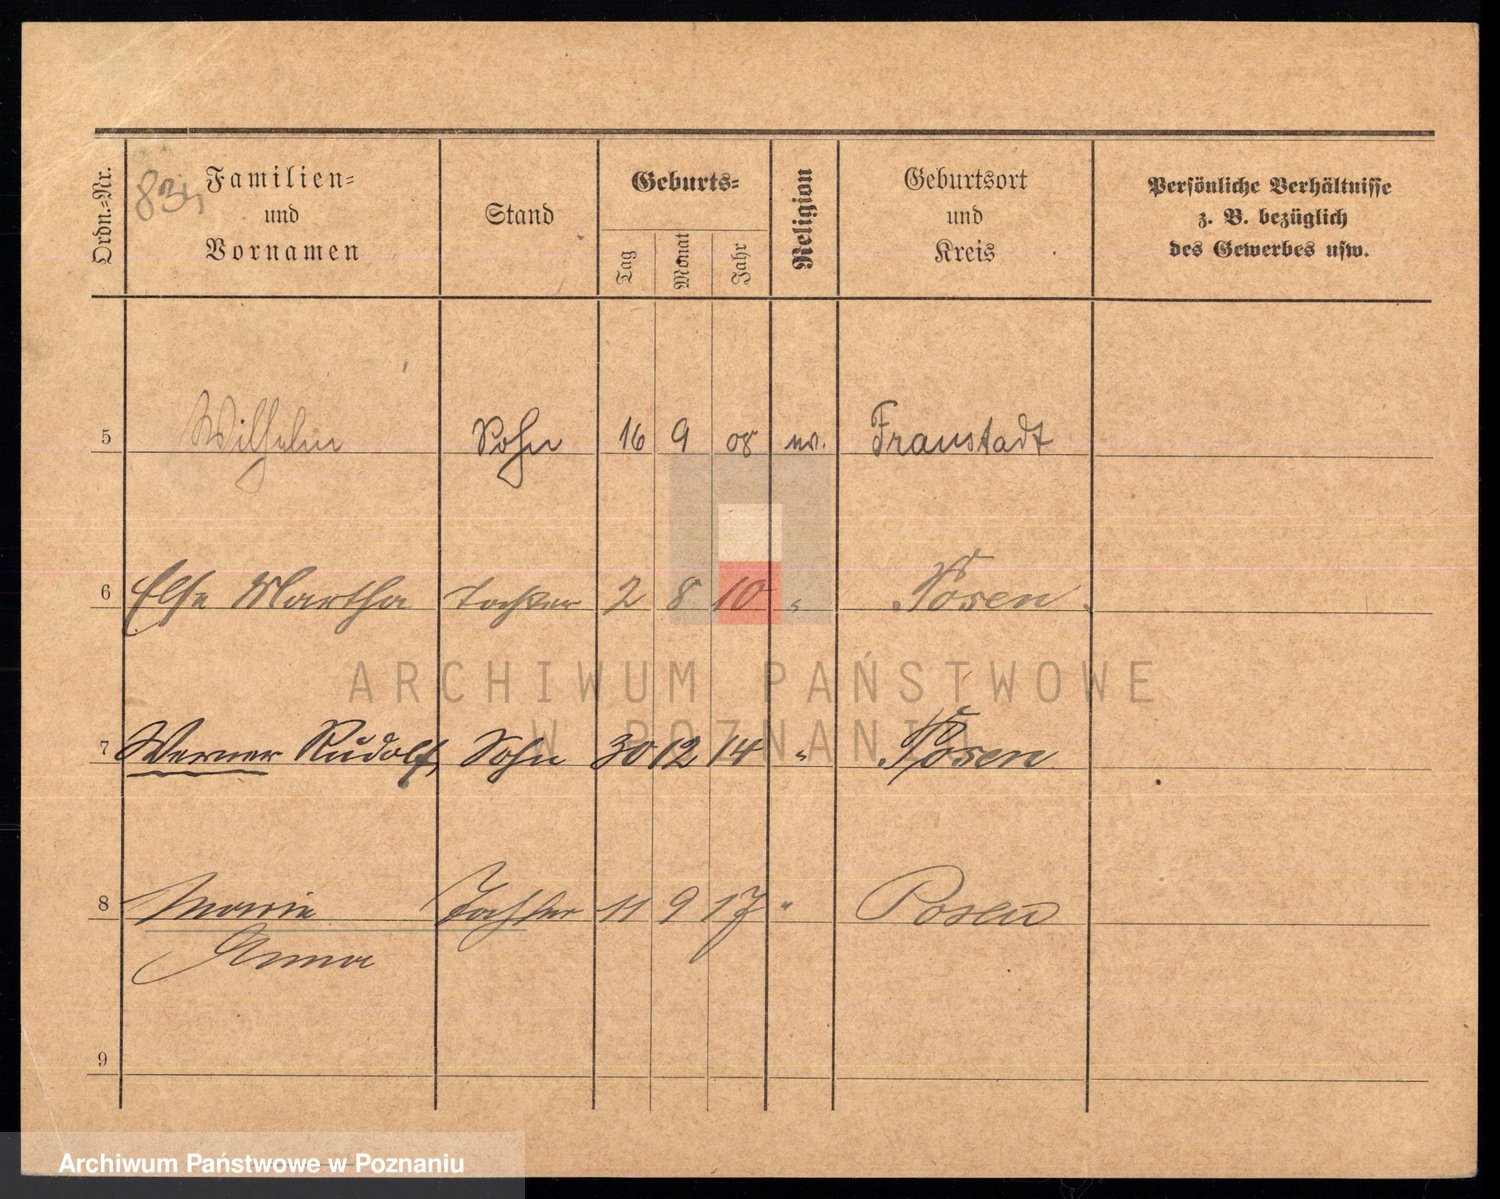 Ordn.-Nr.
Familien-
und
Vornamen
Stand
Geburts-
Tag
Monat
Jahr
Religion
Geburtsort
und
Kreis
Persönliche Verhältnisse
z. B. bezüglich
des Gewerbes usw.
5 Wilhelm Sohn 16 9 08 ev. Fraustadt
6 Else Martha Tochter 2 8 10 " Posen
ARCHIWUM PAŃSTWOWE
W POZNANIU
7 Werner Rudolf, Sohn 30 12 14 " Posen
8 Marie Tochter 11 9 17 " Posen
Anna
9
Archiwum Państwowe w Poznaniu